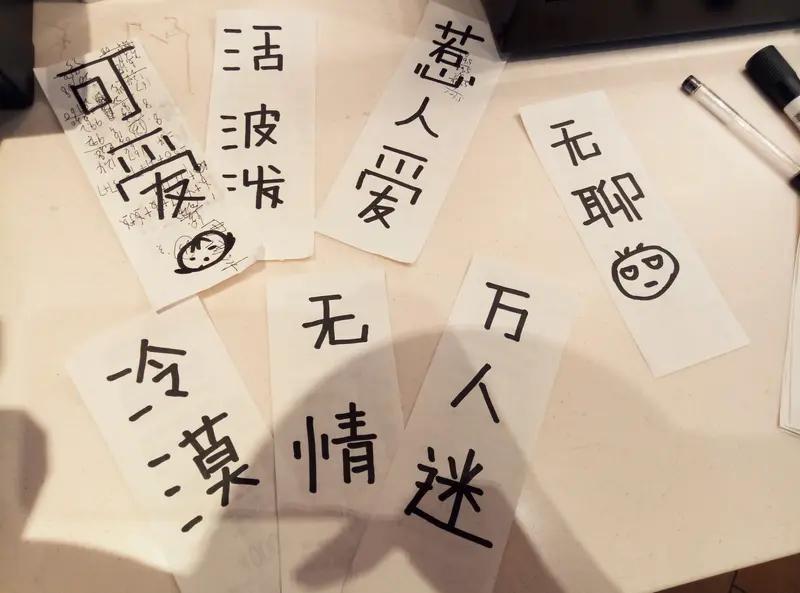 可爱
活波泼
惹人爱
无聊
冷漠
无情
万人迷